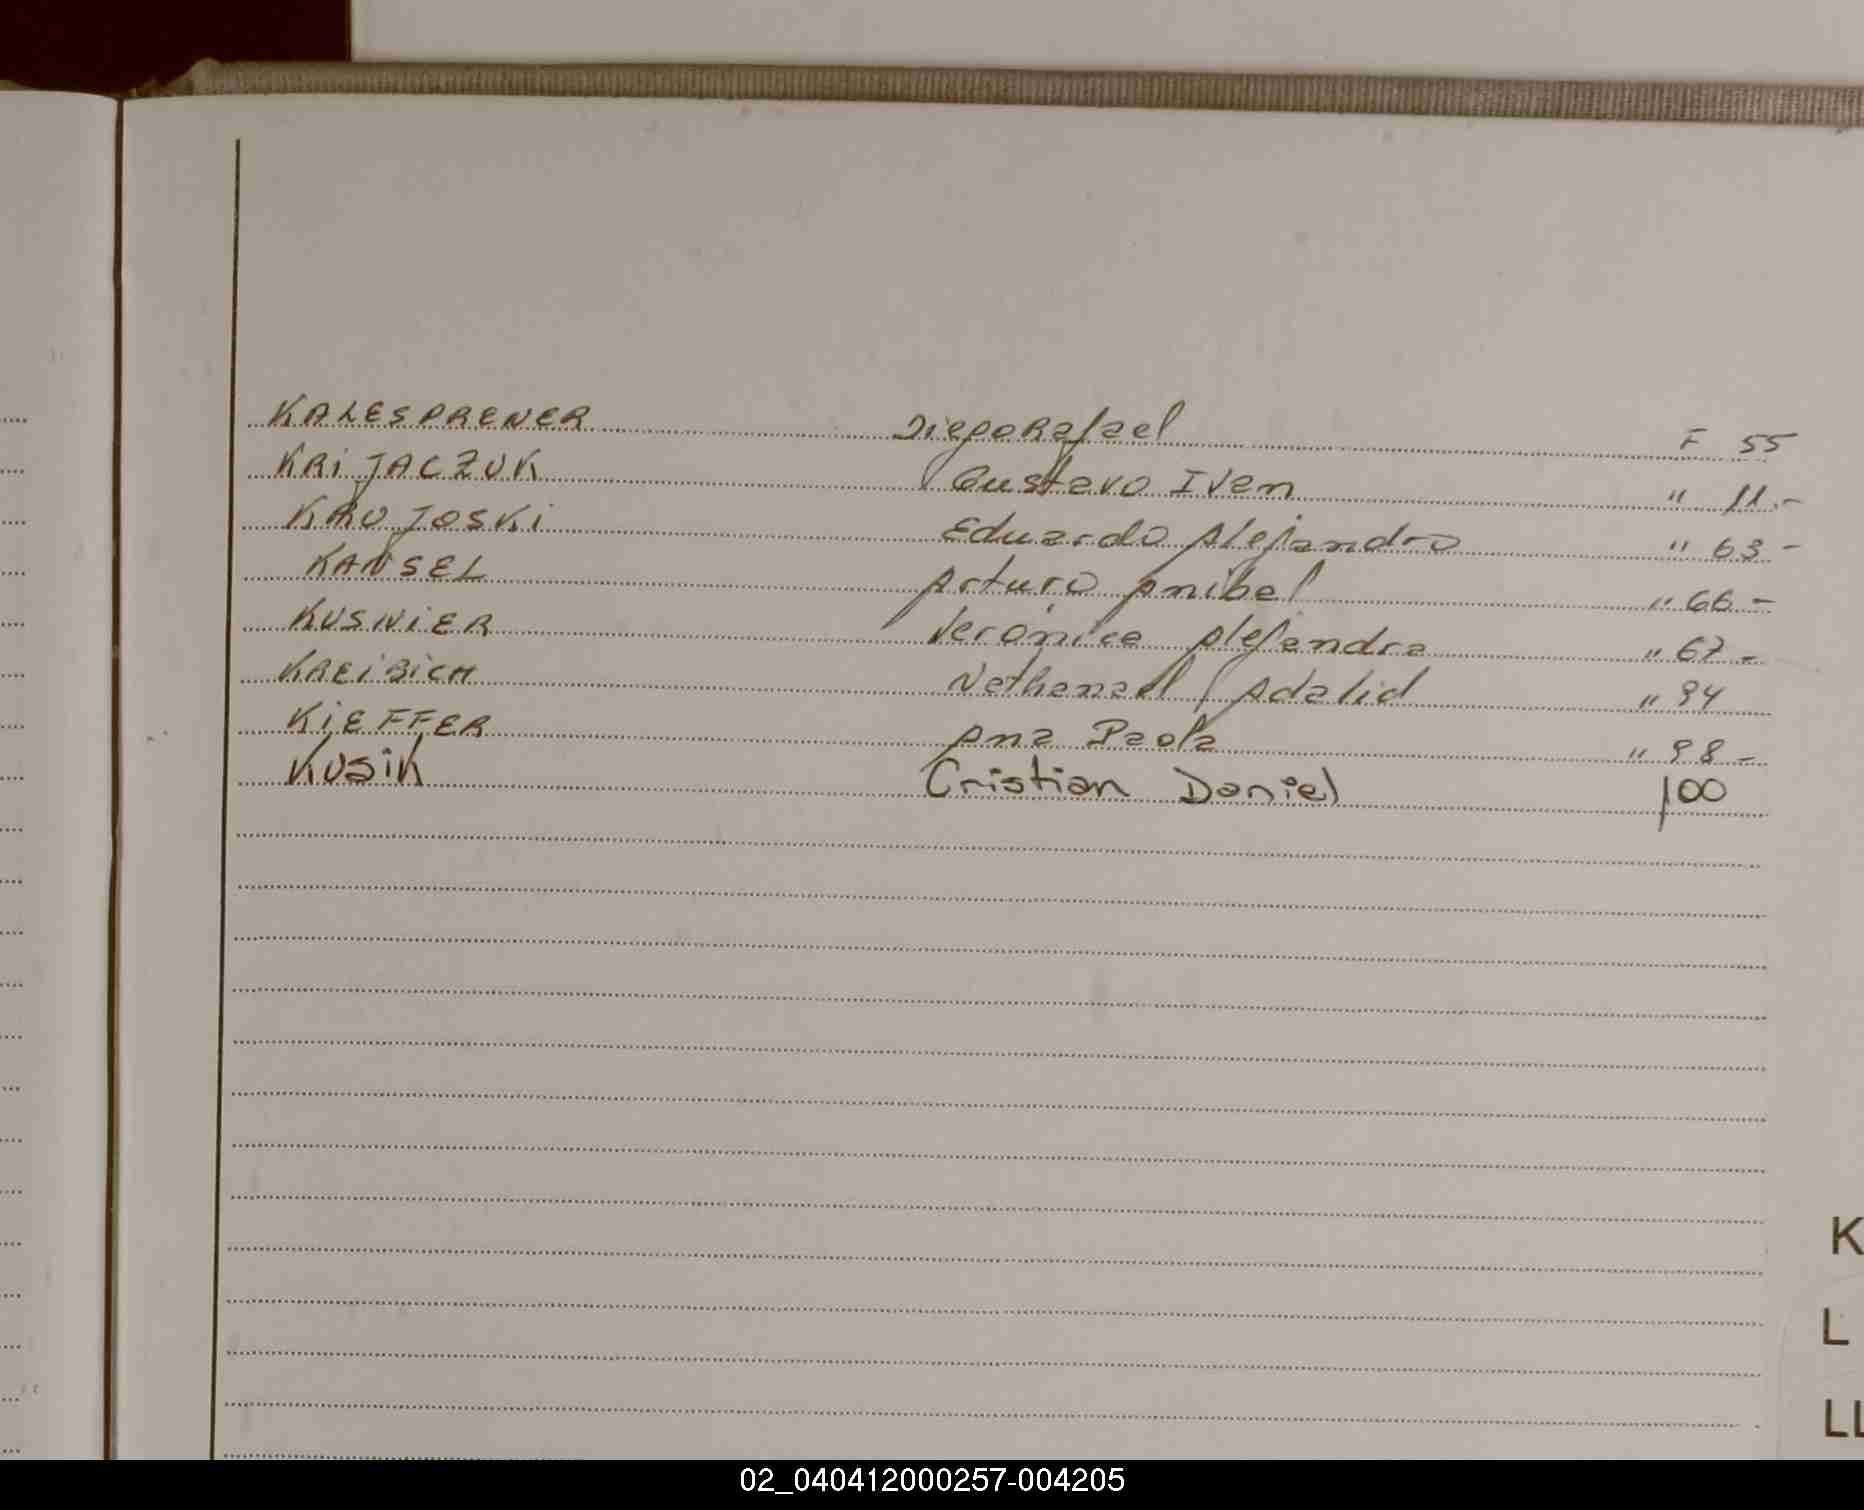 KALESPRENER Diego Rafael F 55
KRiJACZUK Gustavo Ivan " 11.-
KAUJOSKi Eduardo Alejandro " 63 -
KANSEL Arturo Anibal " 66 -
KUSNiER Verónica Alejandra " 67 -
KREiBiCH Nathanael Adalid " 94
KiEFFER Ana Paola " 98 -
KUSiK Cristian Daniel 100
K
L
LL
02_040412000257-004205